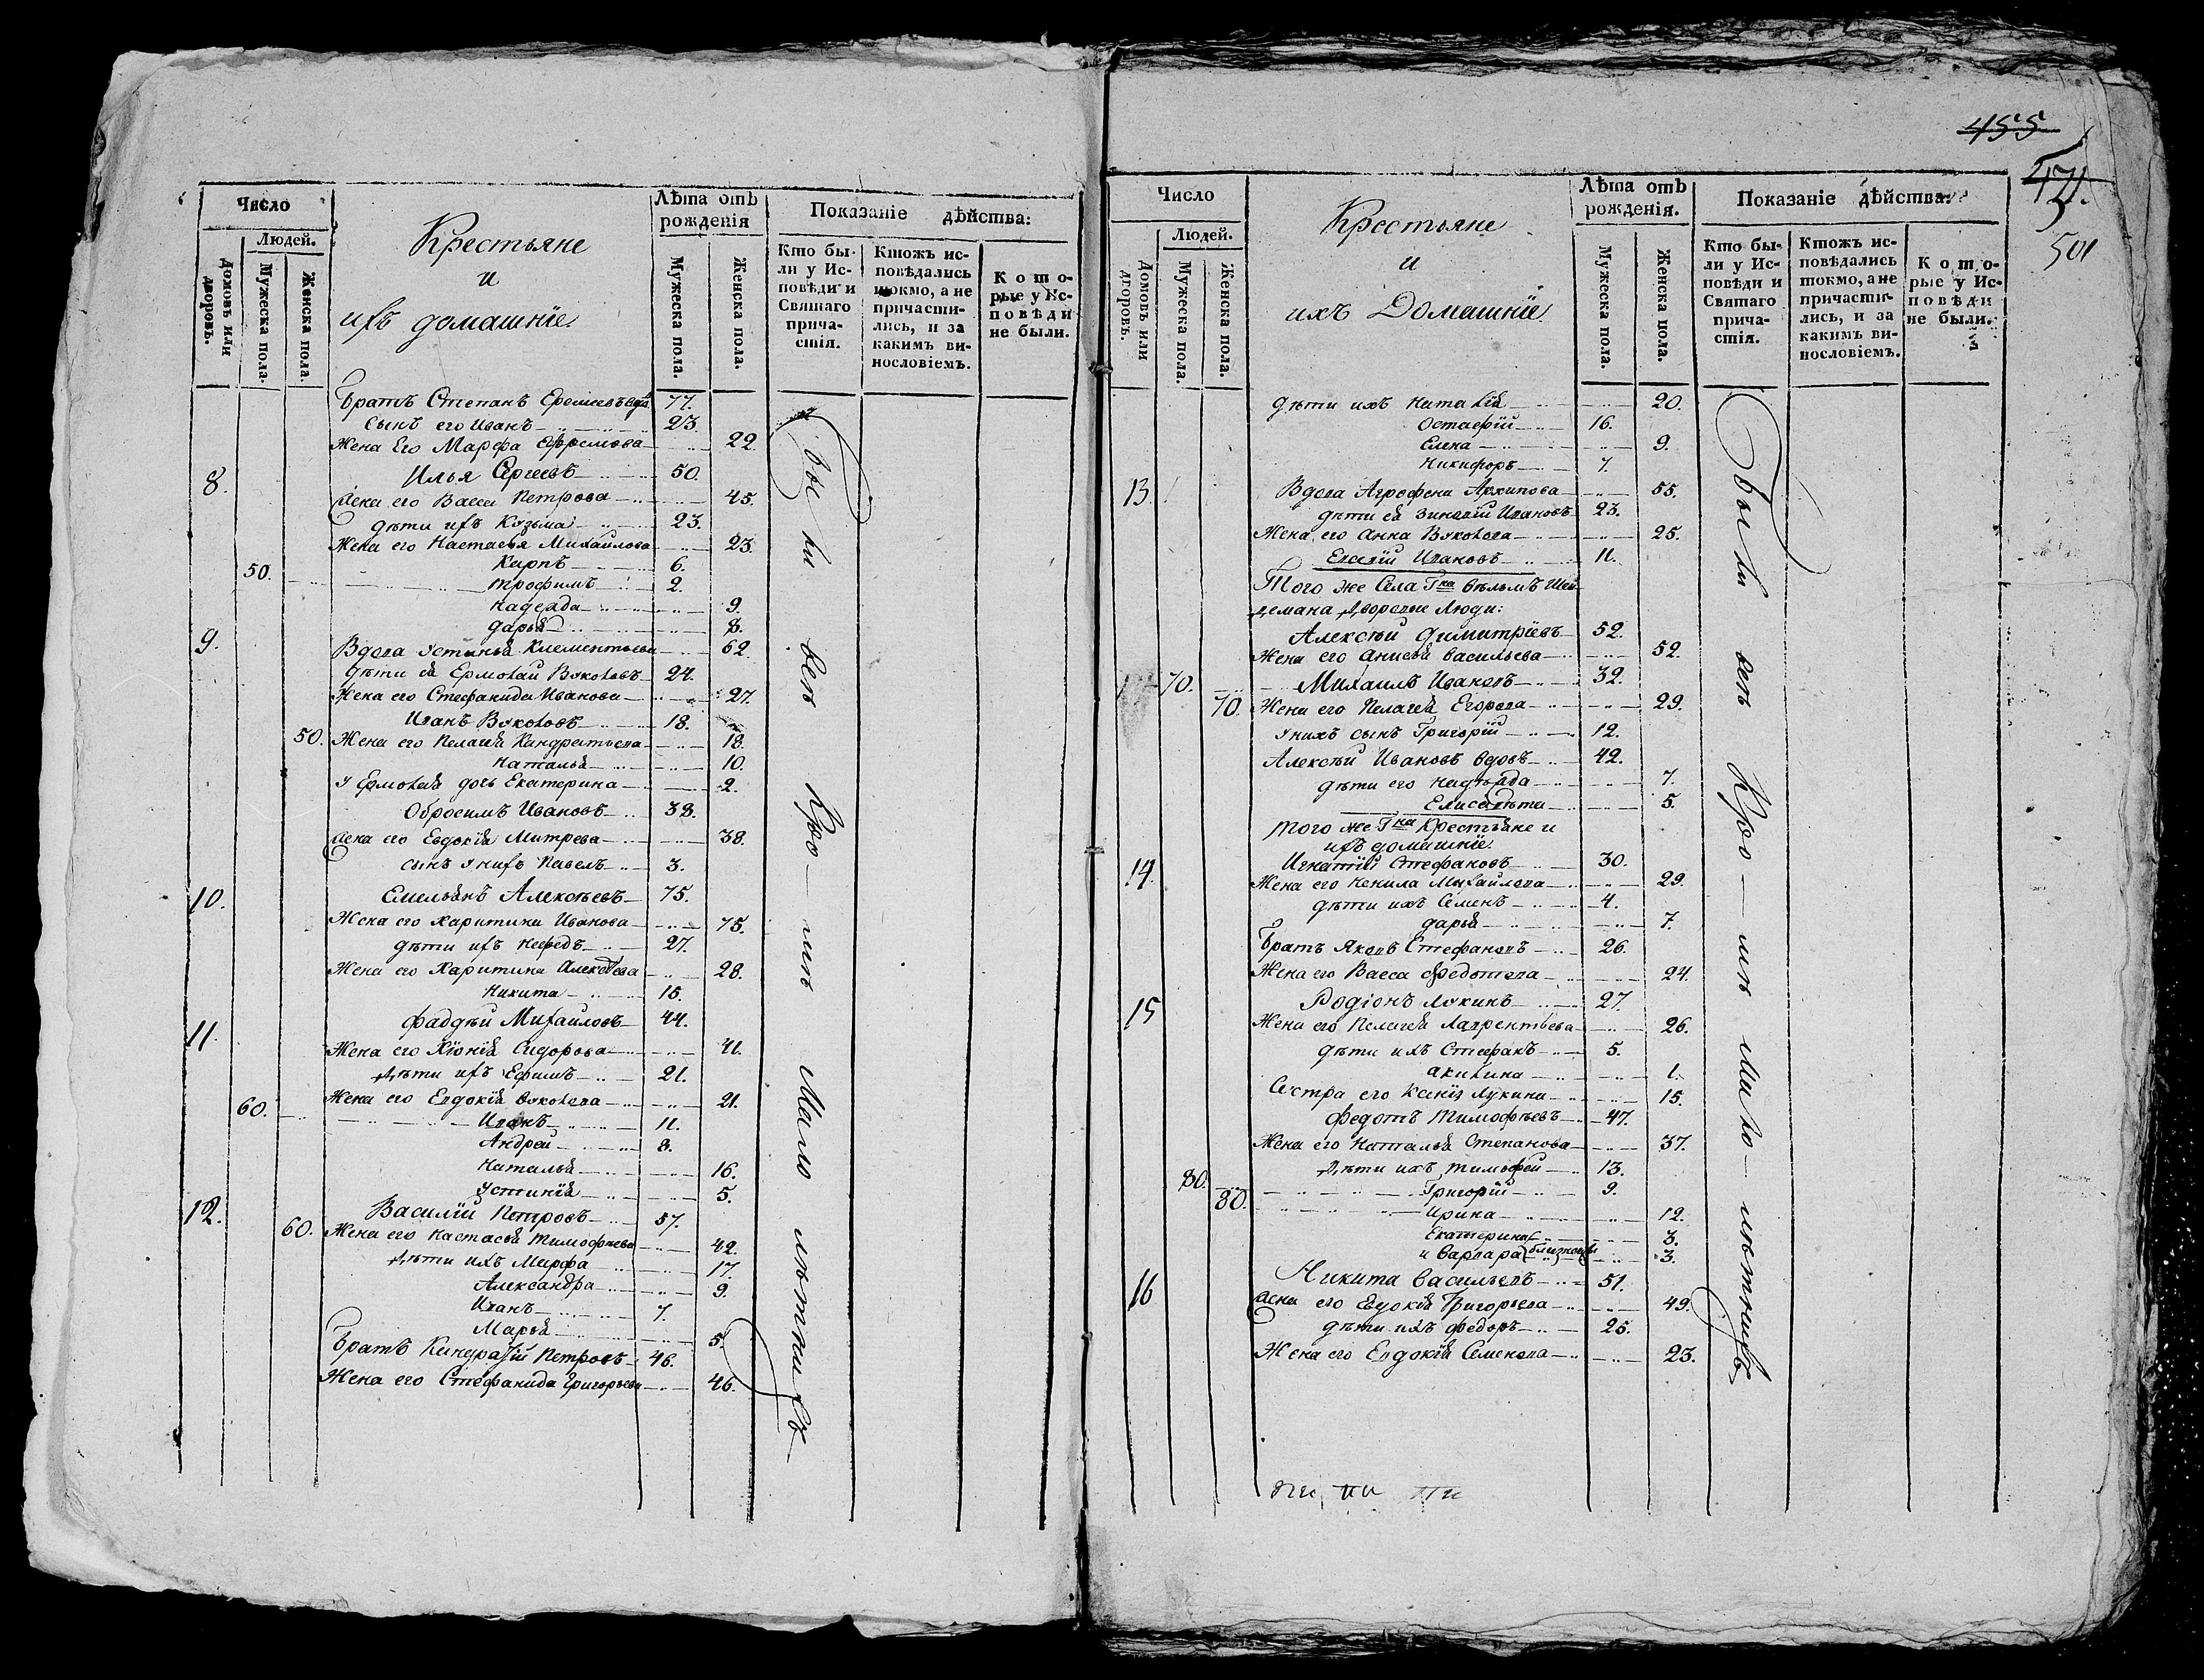 Число
Людей.
Домовъ или дворовъ.
Мужеска пола.
Женска пола.
Крестьяне
и
ихъ домашніе.
Лѣта отъ рожденія
Мужеска пола.
Женска пола.
Показаніе дѣйства:
Кто бы-
ли у Ис-
повѣди и
Святаго
прича-
стія.
Ктожъ ис-
повѣдались
токмо, а не
причасти-
лись, и за
какимъ ви-
нословіемъ.
Кото-
рые у Ис-
повѣди
не были.
Братъ Степанъ 77.
Сынъ его Иванъ 23.
Жена Его Марфа Ефремова 22
8. Илья Сергеевъ 50.
Жена его Васса Петрова 45.
дѣти ихъ Козьма 23.
Жена его Настасья Михайлова 23.
Карпъ 6.
50. Трофимъ 2.
Надежда 9.
Дарья 8.
9. Вдова Устинья Клементьева 62
дѣти ея Ермолай Вуколовъ 24.
Жена его Стефанида Иванова 27.
Иванъ Вуколовъ 18.
50. Жена его Пелагея Кондратьева 18.
Наталья 10.
У Ермолая дочь Екатерина 2.
Обросимъ Ивановъ 38.
Жена его Евдокія Митрева 38.
сынъ у нихъ Павелъ 3.
10. Емельянъ Алексѣевъ 75.
Жена его Харитина Иванова 75.
дѣти ихъ Нефедъ 27.
Жена его Харитина Алексѣева 28.
Никита 15.
11. Фаддѣй Михайловъ 44.
Жена его Хіонія Сидорова 41.
Дѣти ихъ Ефимъ 21.
Жена его Евдокія Вуколова 21.
60. Иванъ 11.
Андрей 8.
Наталья 16.
Устинія 5.
12. Василій Петровъ 57.
60. Жена его Настасья Тимофѣева 42.
Дѣти ихъ Марфа 17.
Александра 9.
Иванъ 7.
Марья 5.
Братъ Кондратій Петровъ 46.
Жена его Стефанида Григорьева 46.
Были всѣ Кро-мѣ Мало лѣтнихъ
455
471.
501
Число
Людей.
Домовъ или дворовъ.
Мужеска пола.
Женска пола.
Крестьяне
и
ихъ Домашніе.
Лѣта отъ рожденія.
Мужеска пола.
Женска пола.
Показаніе дѣйства:
Кто бы-
ли у Ис-
повѣди и
Святаго
прича-
стія.
Ктожъ ис-
повѣдались
токмо, а не
причасти-
лись, и за
какимъ ви-
нословіемъ.
Кото-
рые у Ис-
повѣди
не были.
дѣти ихъ Наталія 20.
Остафій 16.
Елена 9.
Никифоръ 7.
13. Вдова Агрофена Архипова 55.
дѣти ея Зиновій Ивановъ 23.
Жена его Анна Вуколова 25.
Ивановъ 11.
Того же Села Гна
Дворовые Люди:
Алексѣй Димитріевъ 52.
Жена его Анисья Васильева 52.
70. Михаилъ Ивановъ 32.
70. Жена его Пелагея Егорова 29.
У нихъ сынъ Григорій 12.
Алексѣй Ивановъ вдовъ 42.
дѣти его Надежда 7.
Елисавета 5.
Того же Гна Крестьяне и
ихъ домашніе.
14. Игнатій Стефановъ 30.
Жена его Ненила Михайлова 29.
дѣти ихъ Семенъ 4.
Дарья 7.
Братъ Яковъ Стефановъ 26.
Жена его Васса Федотова 24.
15 Родіонъ Лукинъ 27.
Жена его Пелагея Лаврентьева 26.
дѣти ихъ Стефанъ 5.
Акилина 1.
Сестра его Ксенія Лукина 15.
Федотъ Тимофѣевъ 47.
Жена его Наталья Степанова 37.
Дѣти ихъ Тимофей 13.
80. Григорій 9.
80. Ирина 12.
Екатерина 3.
и Варвара близнецы 3.
16 Никита Васильевъ 51.
Жена его Евдокія Григорьева 49.
дѣти ихъ Федоръ 25.
Жена его Евдокія Семенова 23.
Были всѣ Кро-мѣ мало-лѣтнихъ